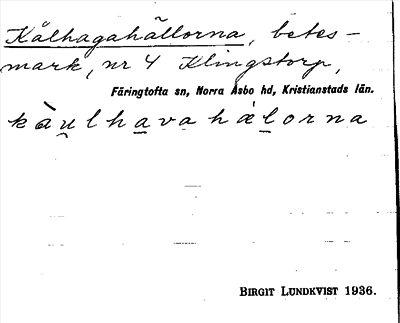 Kålhagahällorna, betes-
mark, nr 4 Klingstorp,
Färingtofta sn, Norra Åsbo hd, Kristianstads län.
kàu̯lhavahálorna
BIRGIT LUNDKVIST 1936.